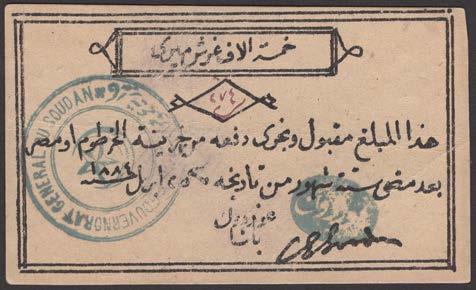 خمسة الاف غرش ميرى
٤٧٤
هذا المبلغ مقبول ويجرى دفعه من خزينة الخرطوم او مصر
بعد مضى ستة شهور من تاريخه ٢٥ ابريل سنة ١٨٨٤
غوردون
باشا
GOUVERNORAT GENERAL DU SOUDAN